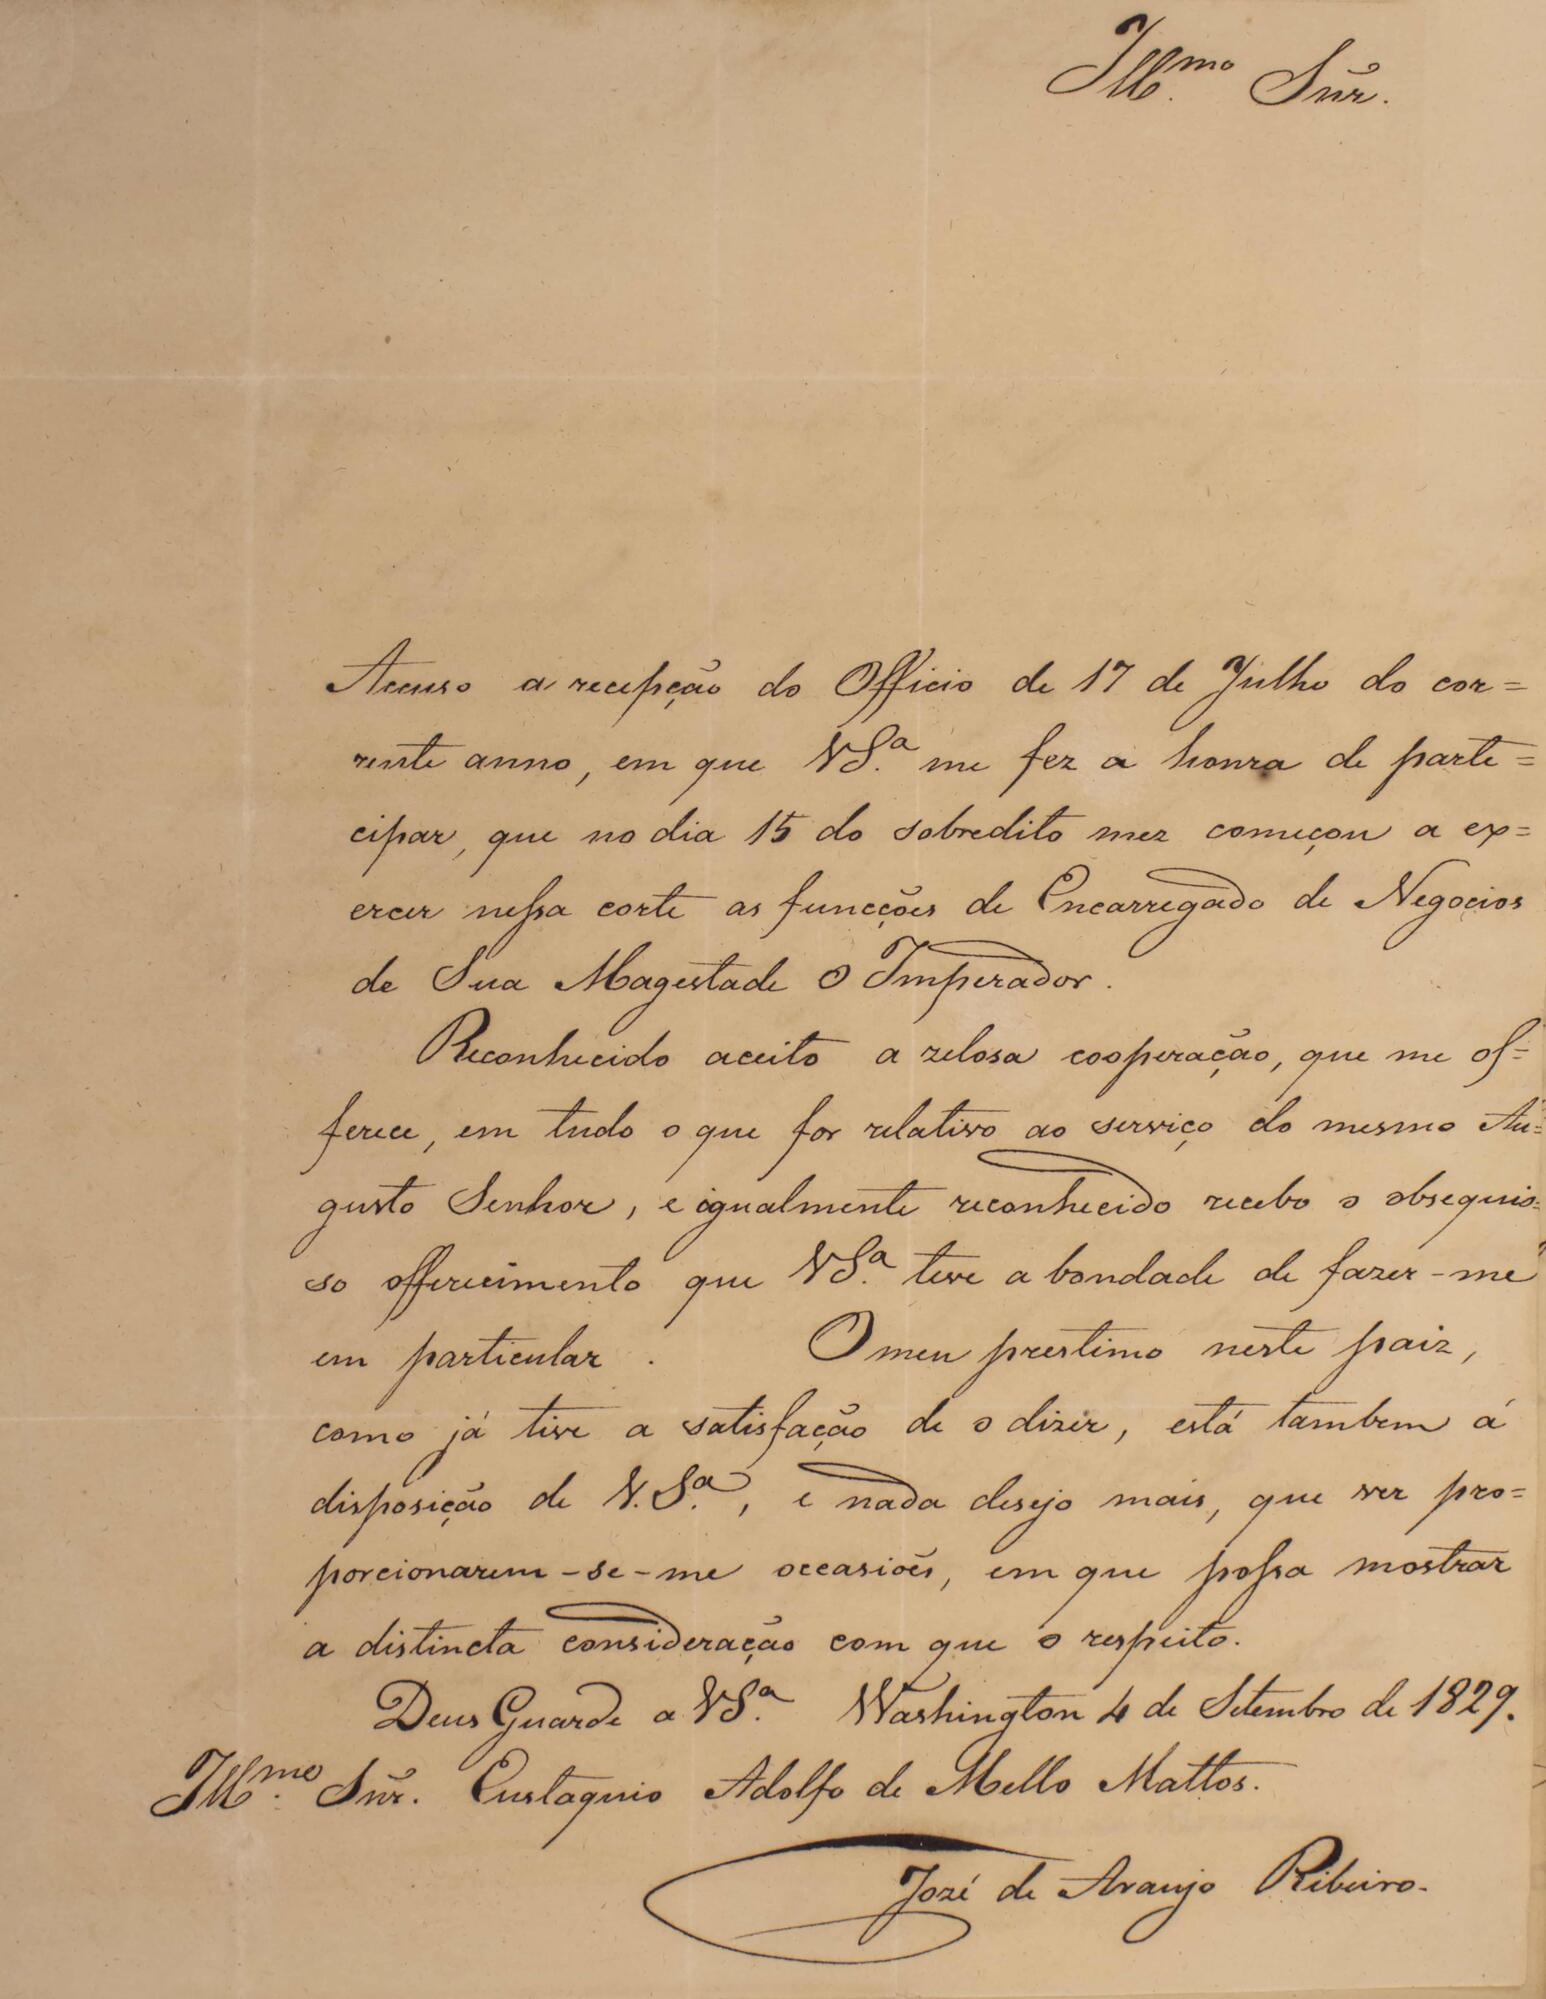 Ill.mo Snr.
Accuso a recepção do Officio de 17 de Julho do cor=
rente anno, em que VS.a me fez a honra de parte=
cipar, que no dia 15 do sobredito mez começou a ex=
ercer nessa corte as funcções de Encarregado de Negocios
de Sua Magestade O Imperador.
Reconhecido aceito a zelosa cooperação, que me of=
ferece, em tudo o que for relativo ao serviço do mesmo Au=
gusto Senhor, e igualmente reconhecido recebo o obsequio=
so offerecimento que VS.a teve a bondade de fazer-me
em particular. O meu prestimo neste paiz,
como já tive a satisfação de o dizer, está tambem á
disposição de V.S.a, e nada desejo mais, que ver pro=
porcionarem-se-me occasiões, em que possa mostrar
a distincta consideração com que o respeito.
Deus Guarde a VS.a Washington 4 de Setembro de 1829.
Ill.mo Snr. Eustaquio Adolfo de Mello Mattos.
Jozé de Araujo Ribeiro.